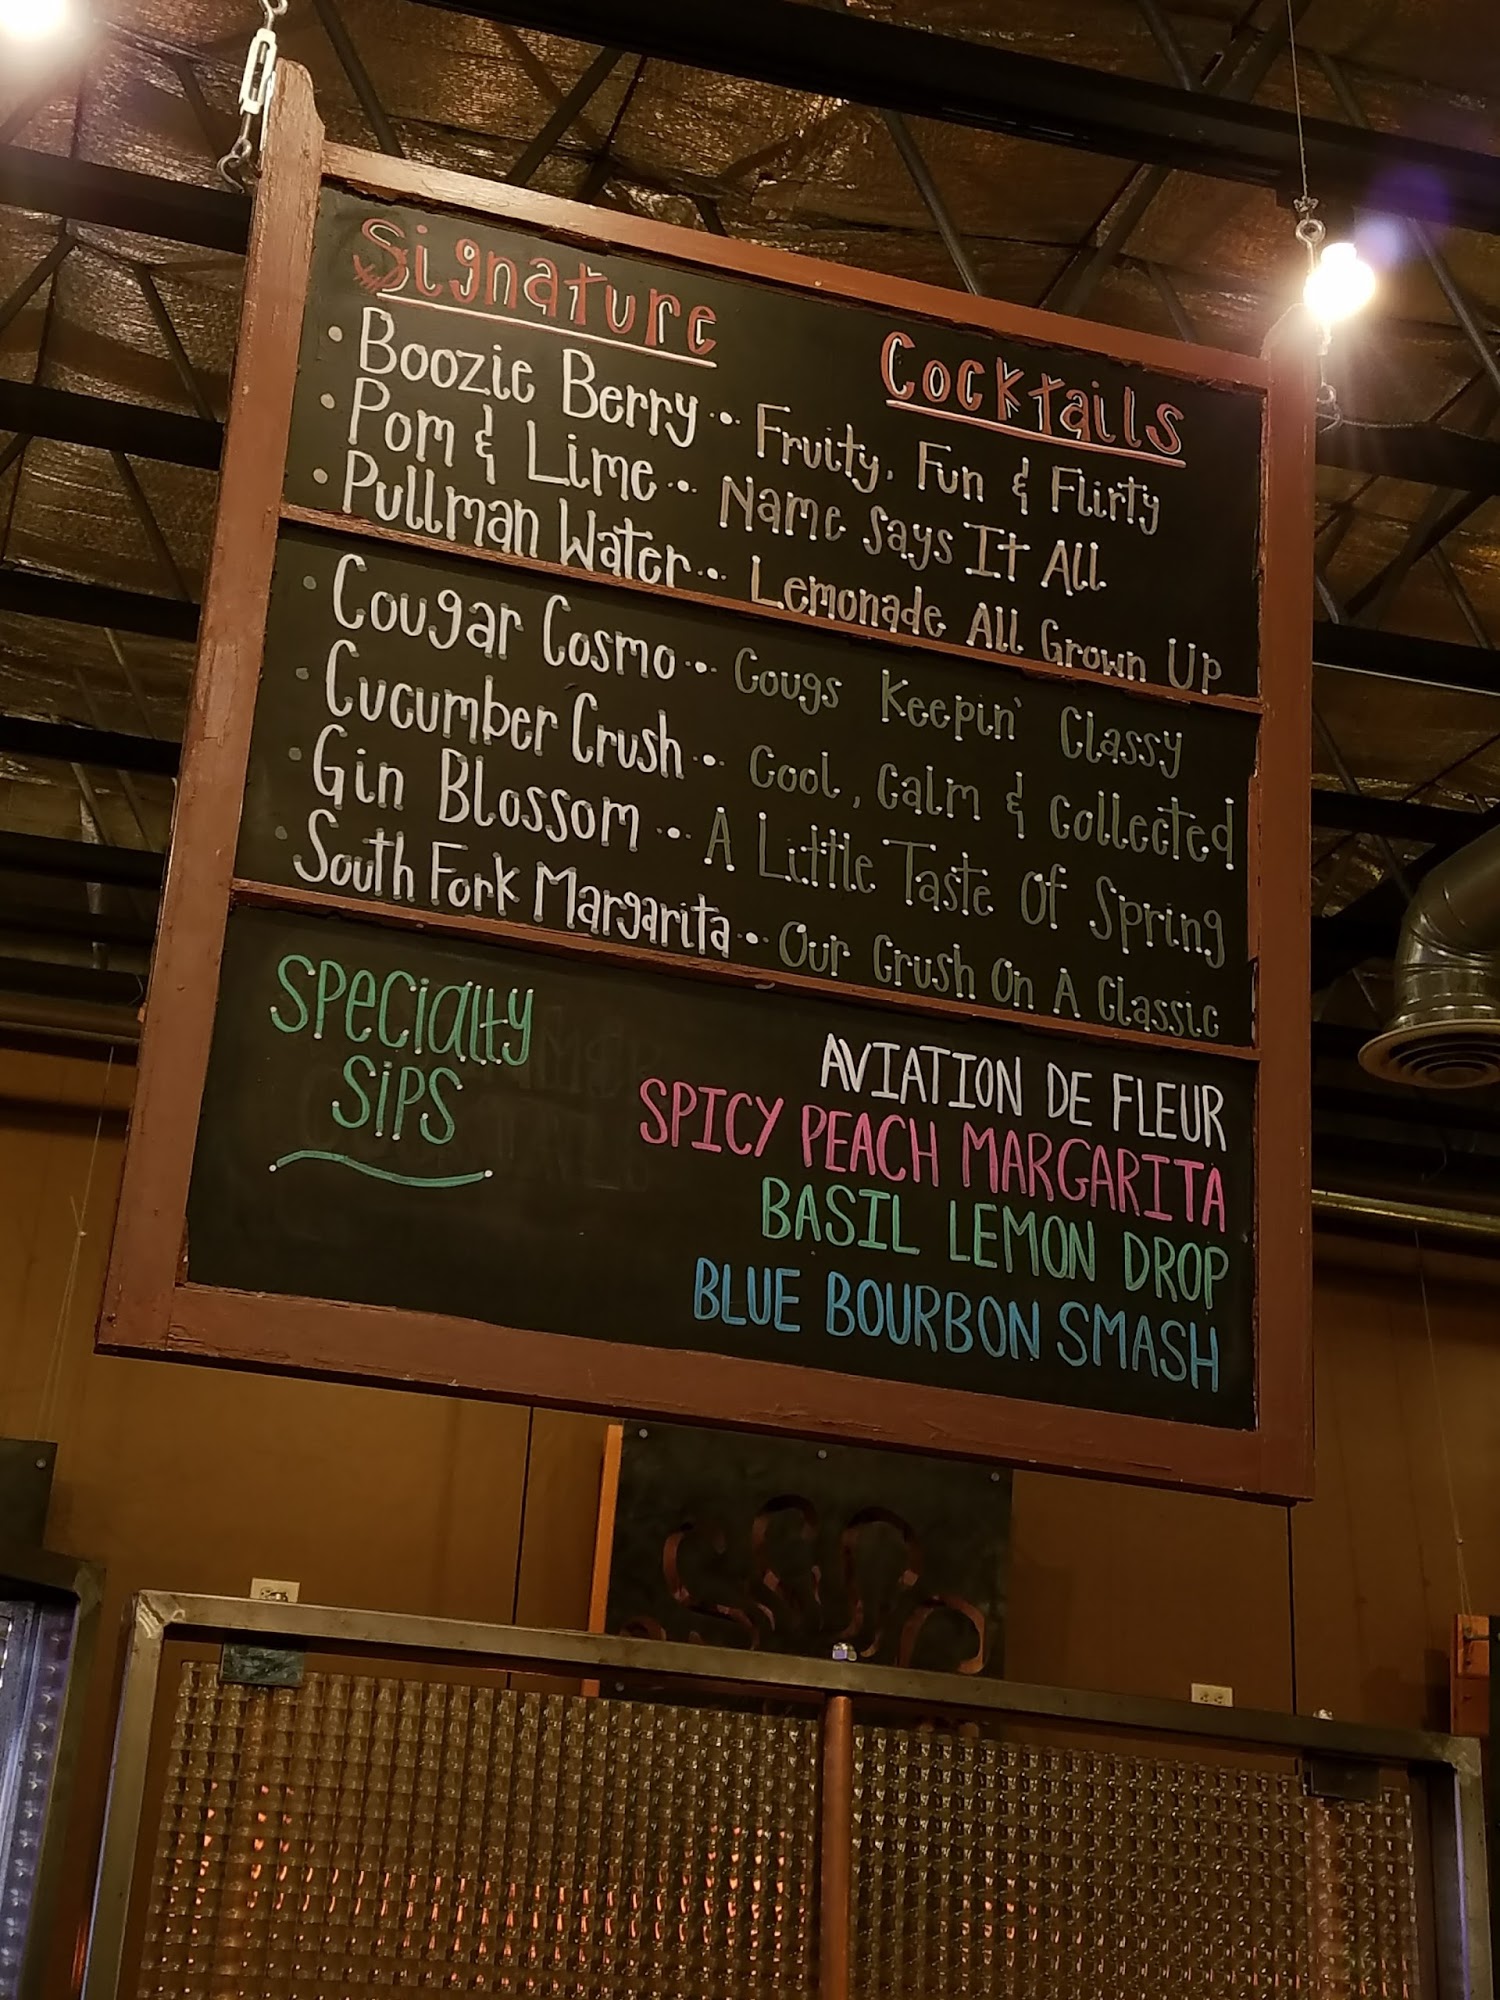 Signature Cocktails
• Boozie Berry •• Fruity, Fun & Flirty
• Pom & Lime •• Name Says It All
• Pullman Water •• Lemonade All Grown Up
• Cougar Cosmo •• Cougs Keepin' Classy
• Cucumber Crush •• Cool, Calm & Collected
• Gin Blossom •• A Little Taste Of Spring
• South Fork Margarita •• Our Crush On A Classic
Specialty
Sips
AVIATION DE FLEUR
SPICY PEACH MARGARITA
BASIL LEMON DROP
BLUE BOURBON SMASH